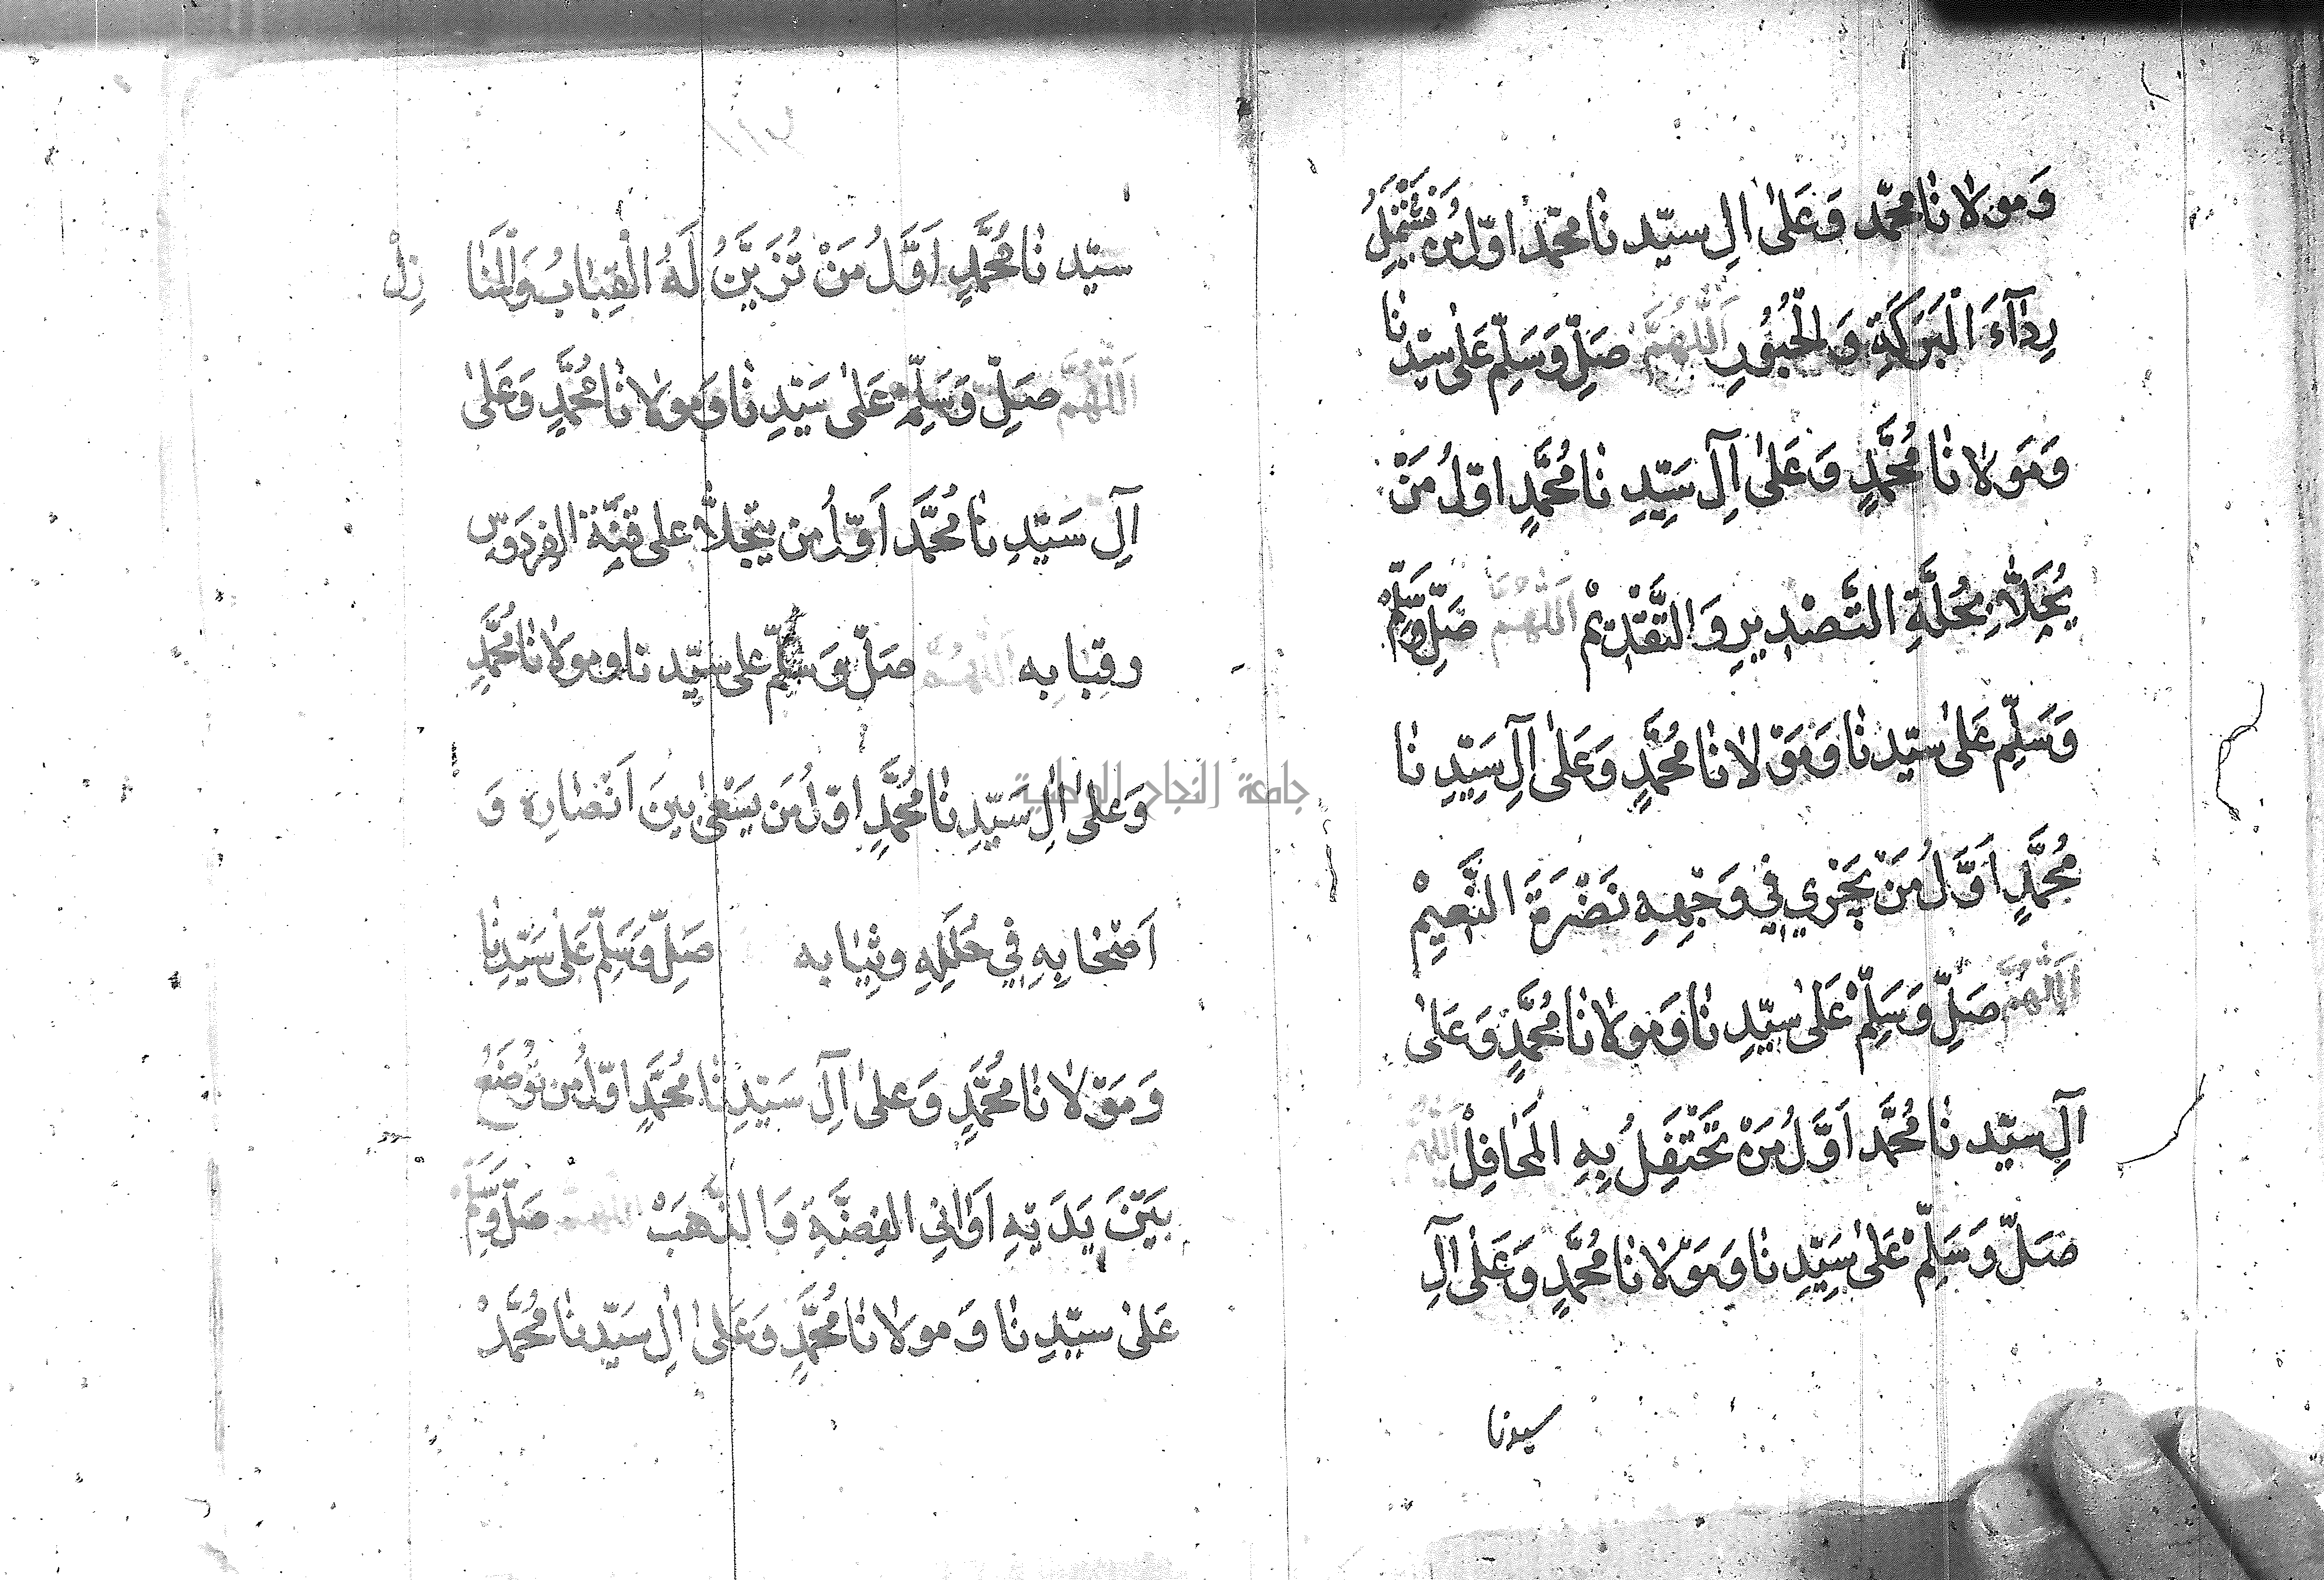 وَمولانا محمّد وَعَلىٰ اٰلِ سيّدنا محمّد اوّلُ من تشْتَمِلُ
رِدَآءَ الْبَرَكَةِ وَالْحُبُورِ اَللّٰهُمَّ صَلِّ وَسَلِّم عَلىٰ سيّدنا
وَمَولانا مُحَمَّدٍ وَعَلىٰ آلِ سَيِّدِنا مُحَمَّدٍ اوّلُ مَنْ
يُجَلَّا بِحُلَّةِ التَّصْدِيرِ وَالتَّقْدِيمْ اَللّٰهُمَّ صَلِّ وَسَلِّمْ
وَسَلِّم عَلىٰ سيّدنا وَمَوْلانا مُحَمَّدٍ وَعَلىٰ آلِ سَيِّدِنا
مُحَمَّدٍ اَوَّلُ مَنْ يَجْرِي فِي وَجْهِهِ نَضْرَةَ النَّعِيمْ
اَللّٰهُمَّ صَلِّ وَسَلِّمْ عَلىٰ سيّدِنا وَمولانا مُحَمَّدٍ وَعَلىٰ
آلِ سيّدنا مُحَمَّد اَوَّلُ مَنْ تَحْتَفِلُ بِهِ الْمَحَافِلْ اَللّٰهُمَّ
صَلِّ وَسَلِّمْ عَلىٰ سَيِّدِنا وَمَوْلانا مُحَمَّدٍ وَعَلىٰ آلِ
سيدنا
سيّدنا مُحَمَّدٍ اَوَّلُ مَنْ تُزَيَّنُ لَهُ الْقِبَابُ وَالْمَنَازِلْ
اَللّٰهُمَّ صَلِّ وَسَلِّمْ عَلىٰ سَيِّدِنا وَمولانا مُحَمَّدٍ وَعَلىٰ
آلِ سَيِّدِنا مُحَمَّد اَوّلُ من يتجلّا على قبّة الفردوس
وقبابه اَللّٰهُمَّ صَلِّ وَسَلِّم على سَيّدنا ومولانا مُحَمَّدٍ
وَعلىٰ اٰلِ سَيّدِنا مُحَمَّدٍ اوّلُ مَن يَسْعىٰ بينَ اَنْصَارِهِ وَ
اَصْحَابِهِ فِي حُلَلِهِ وثِيابه صَلِّ وَسَلِّم عَلىٰ سَيّدِنا
وَمَوْلانا مُحَمَّدٍ وَعلىٰ آلِ سَيّدِنا مُحَمَّدٍ اوّلُ من تُوضَعُ
بَيْنَ يَدَيْهِ اَوَانِي الفِضَّةِ وَالذَّهَبْ اللّٰهمّ صَلِّ وَسَلِّمْ
عَلىٰ سيّدِنا وَمولانا مُحَمَّدٍ وَعَلىٰ اٰلِ سَيّدِنا مُحَمَّدْ
جامعة النجاح الوطنية